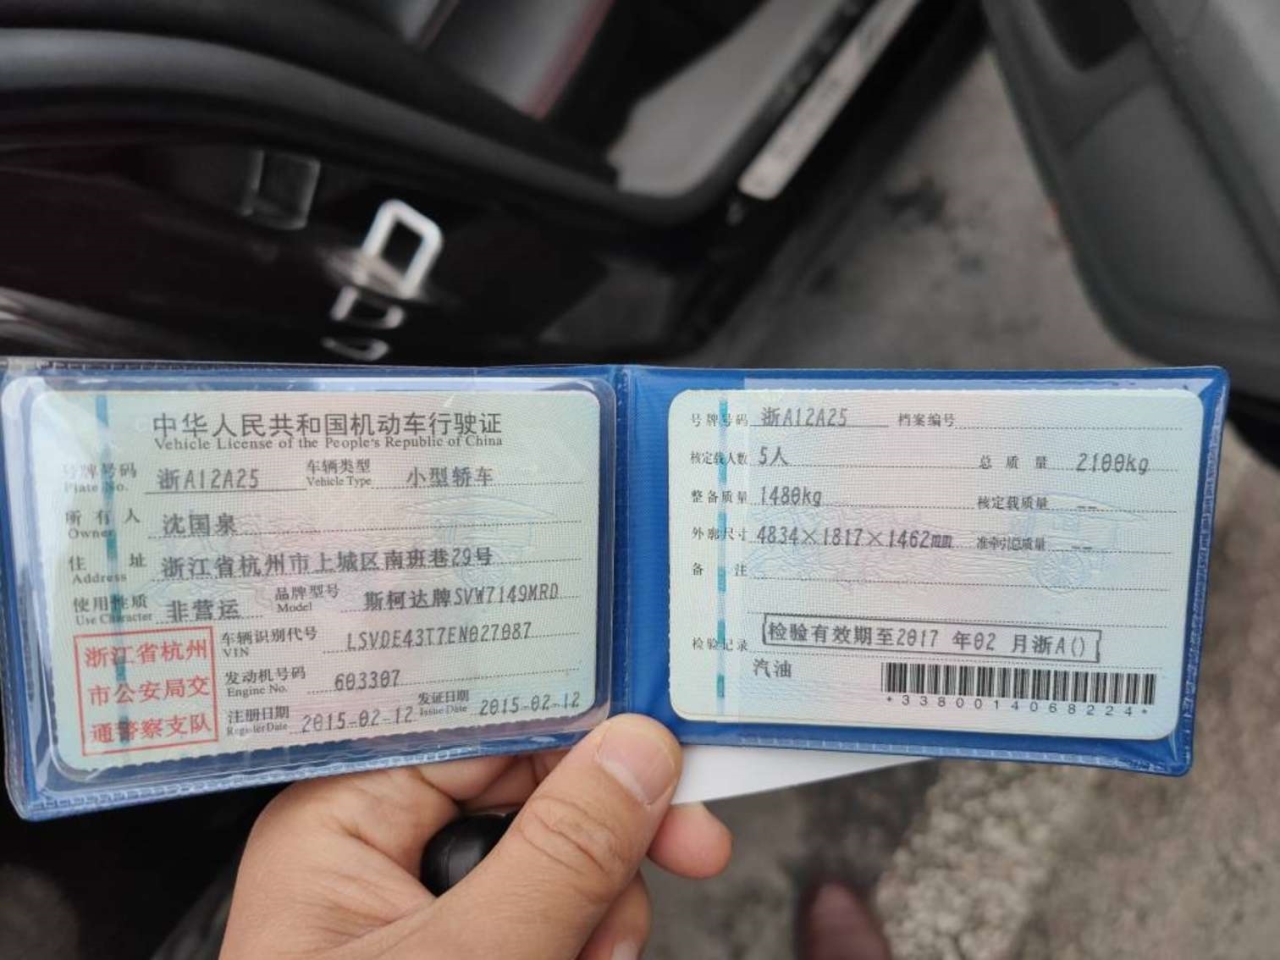 中华人民共和国机动车行驶证
Vehicle License of the People's Republic of China
号牌号码 浙A12A25 车辆类型 小型轿车
Plate No. Vehicle Type
所有人 沈国泉
Owner
住址 浙江省杭州市上城区南班巷29号
Address
使用性质 非营运 品牌型号 斯柯达牌SVW7149MRD
Use Character Model
浙江省杭州
市公安局交
通警察支队
车辆识别代号 LSVDE43T7EN027087
VIN
发动机号码 603307
Engine No.
注册日期 2015-02-12 发证日期 2015-02-12
Register Date Issue Date
号牌号码 浙A12A25 档案编号
核定载人数 5人 总质量 2100kg
整备质量 1480kg 核定载质量 --
外廓尺寸 4834×1817×1462mm 准牵引总质量 --
备注
检验记录 检验有效期至2017 年02 月浙A()
汽油
*3380014068224*